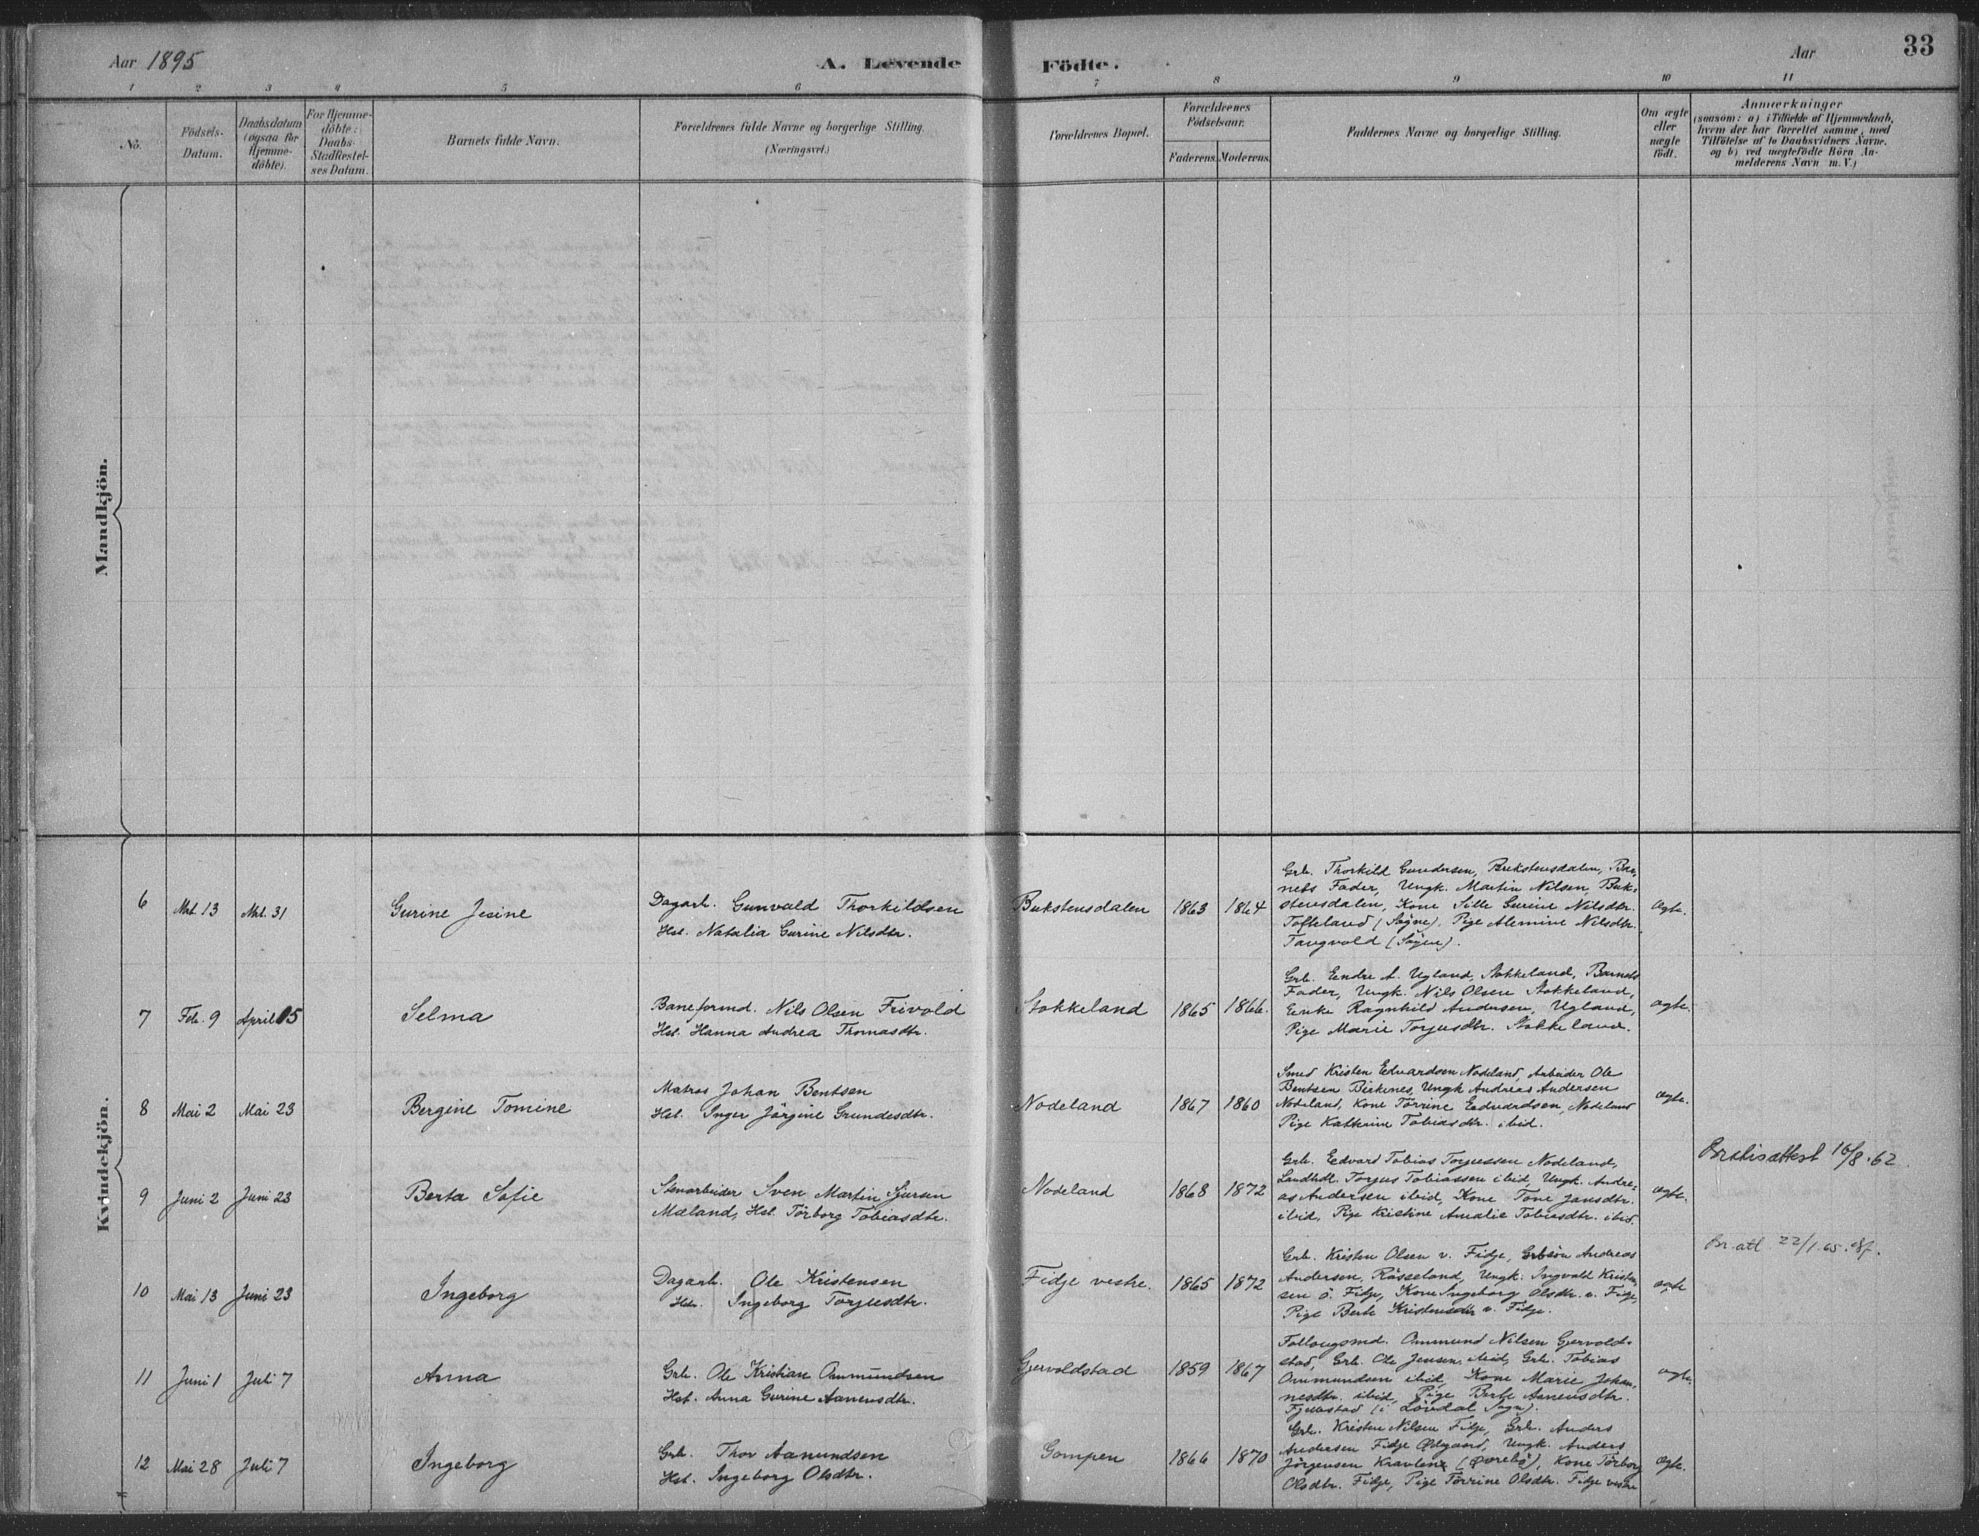 Aar 1895
A. Levende Födte.
Aar
33
1 2 3 4 5 6 7 8 9 10 11
No.
Födsels-
Datum.
Daabsdatum
(ogsaa for
Hjemme-
döbte).
For Hjemme-
döbte:
Daabs-
Stadfæstel-
ses Datum.
Barnets fulde Navn.
Forældrenes fulde Navne og borgerlige Stilling.
(Næringsvei.)
Forældrenes Bopæl.
Forældrenes
Födselsaar.
Faderens. Moderens.
Faddernes Navne og borgerlige Stilling.
Om ægte
eller
uægte
födt.
Anmærkninger
(saasom: a) i Tilfælde af Hjemmedaab,
hvem der har forrettet samme, med
Tilföielse af to Daabsvidners Navne.
og b) ved uægtefödte Börn An-
melderens Navn m. V.)
Mandkjön.
Kvindekjön.
6 Mrt. 13 Mrt. 31
Gurine Jesine
Dagarb. Gunvald Thorkildsen
Hst. Natalia Gurine Nilsdtr.
Bukstensdalen 1863 1864
Grb. Thorkild Gundersen, Bukstensdalen, Bar-
nets Fader, Ungk. Martin Nilsen, Buk-
stensdalen, Kone Sille Gurine Nilsdtr.
Tofteland (Søgne). Pige Alemine Nilsdtr.
Tangvold (Søgne).
ægte.
7 Feb. 9 April 15
Selma
Baneformd. Nils Olsen Frivold
Hst. Hanna Andrea Thomasdtr.
Stokkeland 1865 1866.
Grb. Endre A. Ugland, Stokkeland, Barnets
Fader, Ungk. Nils Olsen Stokkeland,
Enke Ragnhild Andersen, Ugland,
Pige Marie Torjusdtr. Stokkeland.
ægte.
8 Mai 2 Mai 23
Bergine Tomine
Matros Johan Bentsen
Hst. Inger Jørgine Grundesdtr.
Nodeland 1867 1860
Smed Kristen Edvardsen Nodeland, Arbeider Ole
Bentsen Birkenes, Ungk Andreas Andersen
Nodeland, Kone Torrine Eedvardsen, Nodeland
Pige Kathrine Tobiasdtr. ibid.
ægte.
9 Juni 2 Juni 23
Berta Sofie
Stenarbeider Sven Martin Sjursen
Mæland, Hst. Tørborg Tobiasdtr.
Nodeland 1868 1872
Grb. Eedvard Tobias Torjussen Nodeland,
Landhdl. Torjus Tobiassen ibid, Ungk. Andre-
as Andersen ibid, Kone Tone Jansdtr.
ibid, Pige Kristine Amalie Tobiasdtr. ibid.
ægte.
16/8.62
10 Mai 13 Juni 23
Ingeborg
Dagarb. Ole Kristensen
Hst. Ingeborg Torjusdtr.
Fidje vestre. 1865 1872
Grb. Kristen Olsen v. Fidje, Grbsøn Andreas
Andersen, Røsseland, Ungk. Ingvald Kristen-
sen ö. Fidje, Kone Ingeborg Olsdtr. v. Fidje,
Pige Berte Kristensdtr v. Fidje.
ægte
Br. att 22/1.65.
11 Juni 1 Juli 7
Anna
Grb. Ole Kristian Ommundsen
Hst. Anna Gurine Aanensdtr.
Gjervoldstad 1859 1867
Ommund Nilsen Gjervold-
stad, Grb. Ole Jensen ibid, Grb. Tobias
Ommundsen ibid, Kone Marie Johan-
nesdtr. ibid, Pige Berte Aanensdtr.
(i Løvdal Sogn).
ægte.
12 Mai 28 Juli 7
Ingeborg
Grb. Thor Aanundsen
Hst. Ingeborg Olsdtr.
Gompen 1866 1870
Grb. Kristen Nilsen Fidje, Grb. Anders
Andersen Fidje Ødegaard, Ungk. Anders
Jørgensen (Øvrebø), Kone Tørborg
Olsdtr. Fidje, Pige Torrine Olsdtr. Fidje vestre
ægte.